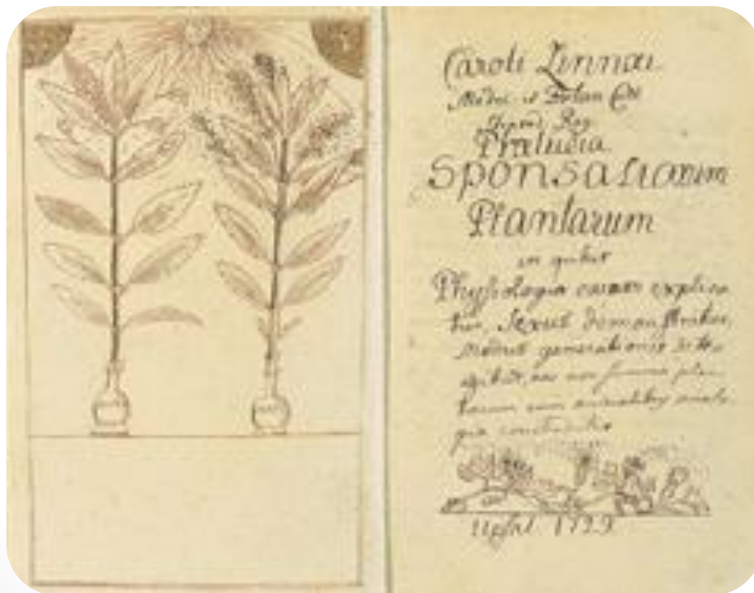 Caroli Linnæi
Præludia
SponsaLiorum
Plantarum
in quibus
Physiologia earum explica-
tur, Sexus demonstratur,
modus generationis dete-
gitur, nec non summa plan-
tarum cum animalibus analo-
gia concluditur
Upsal 1729